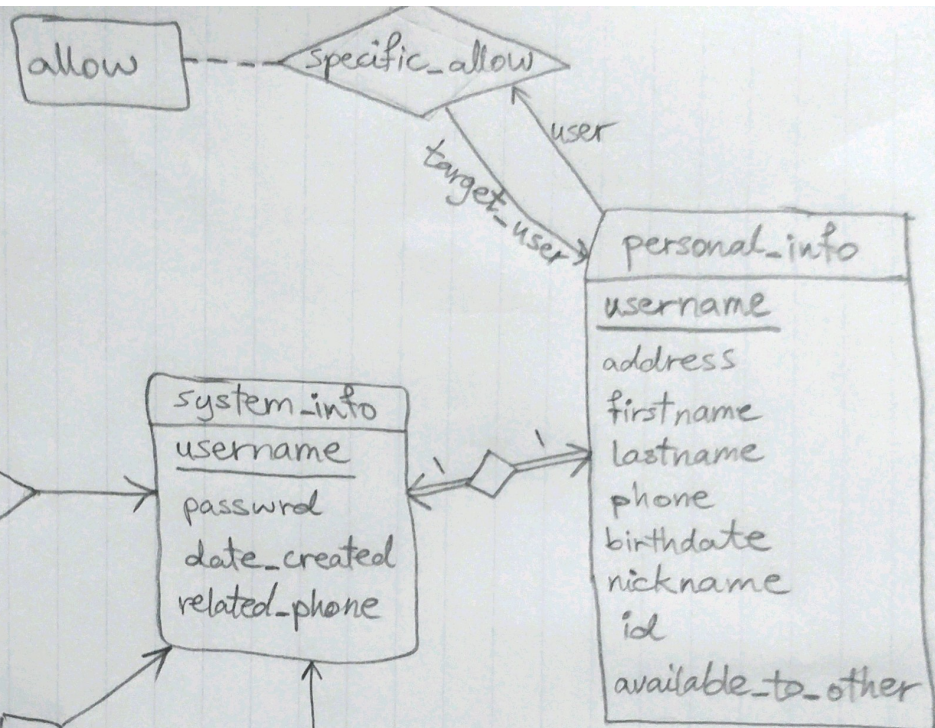 allow
specific_allow
user
target_user
personal_info
username
address
firstname
lastname
phone
birthdate
nickname
id
available_to_other
system_info
username
passwrd
date_created
related_phone
1
1